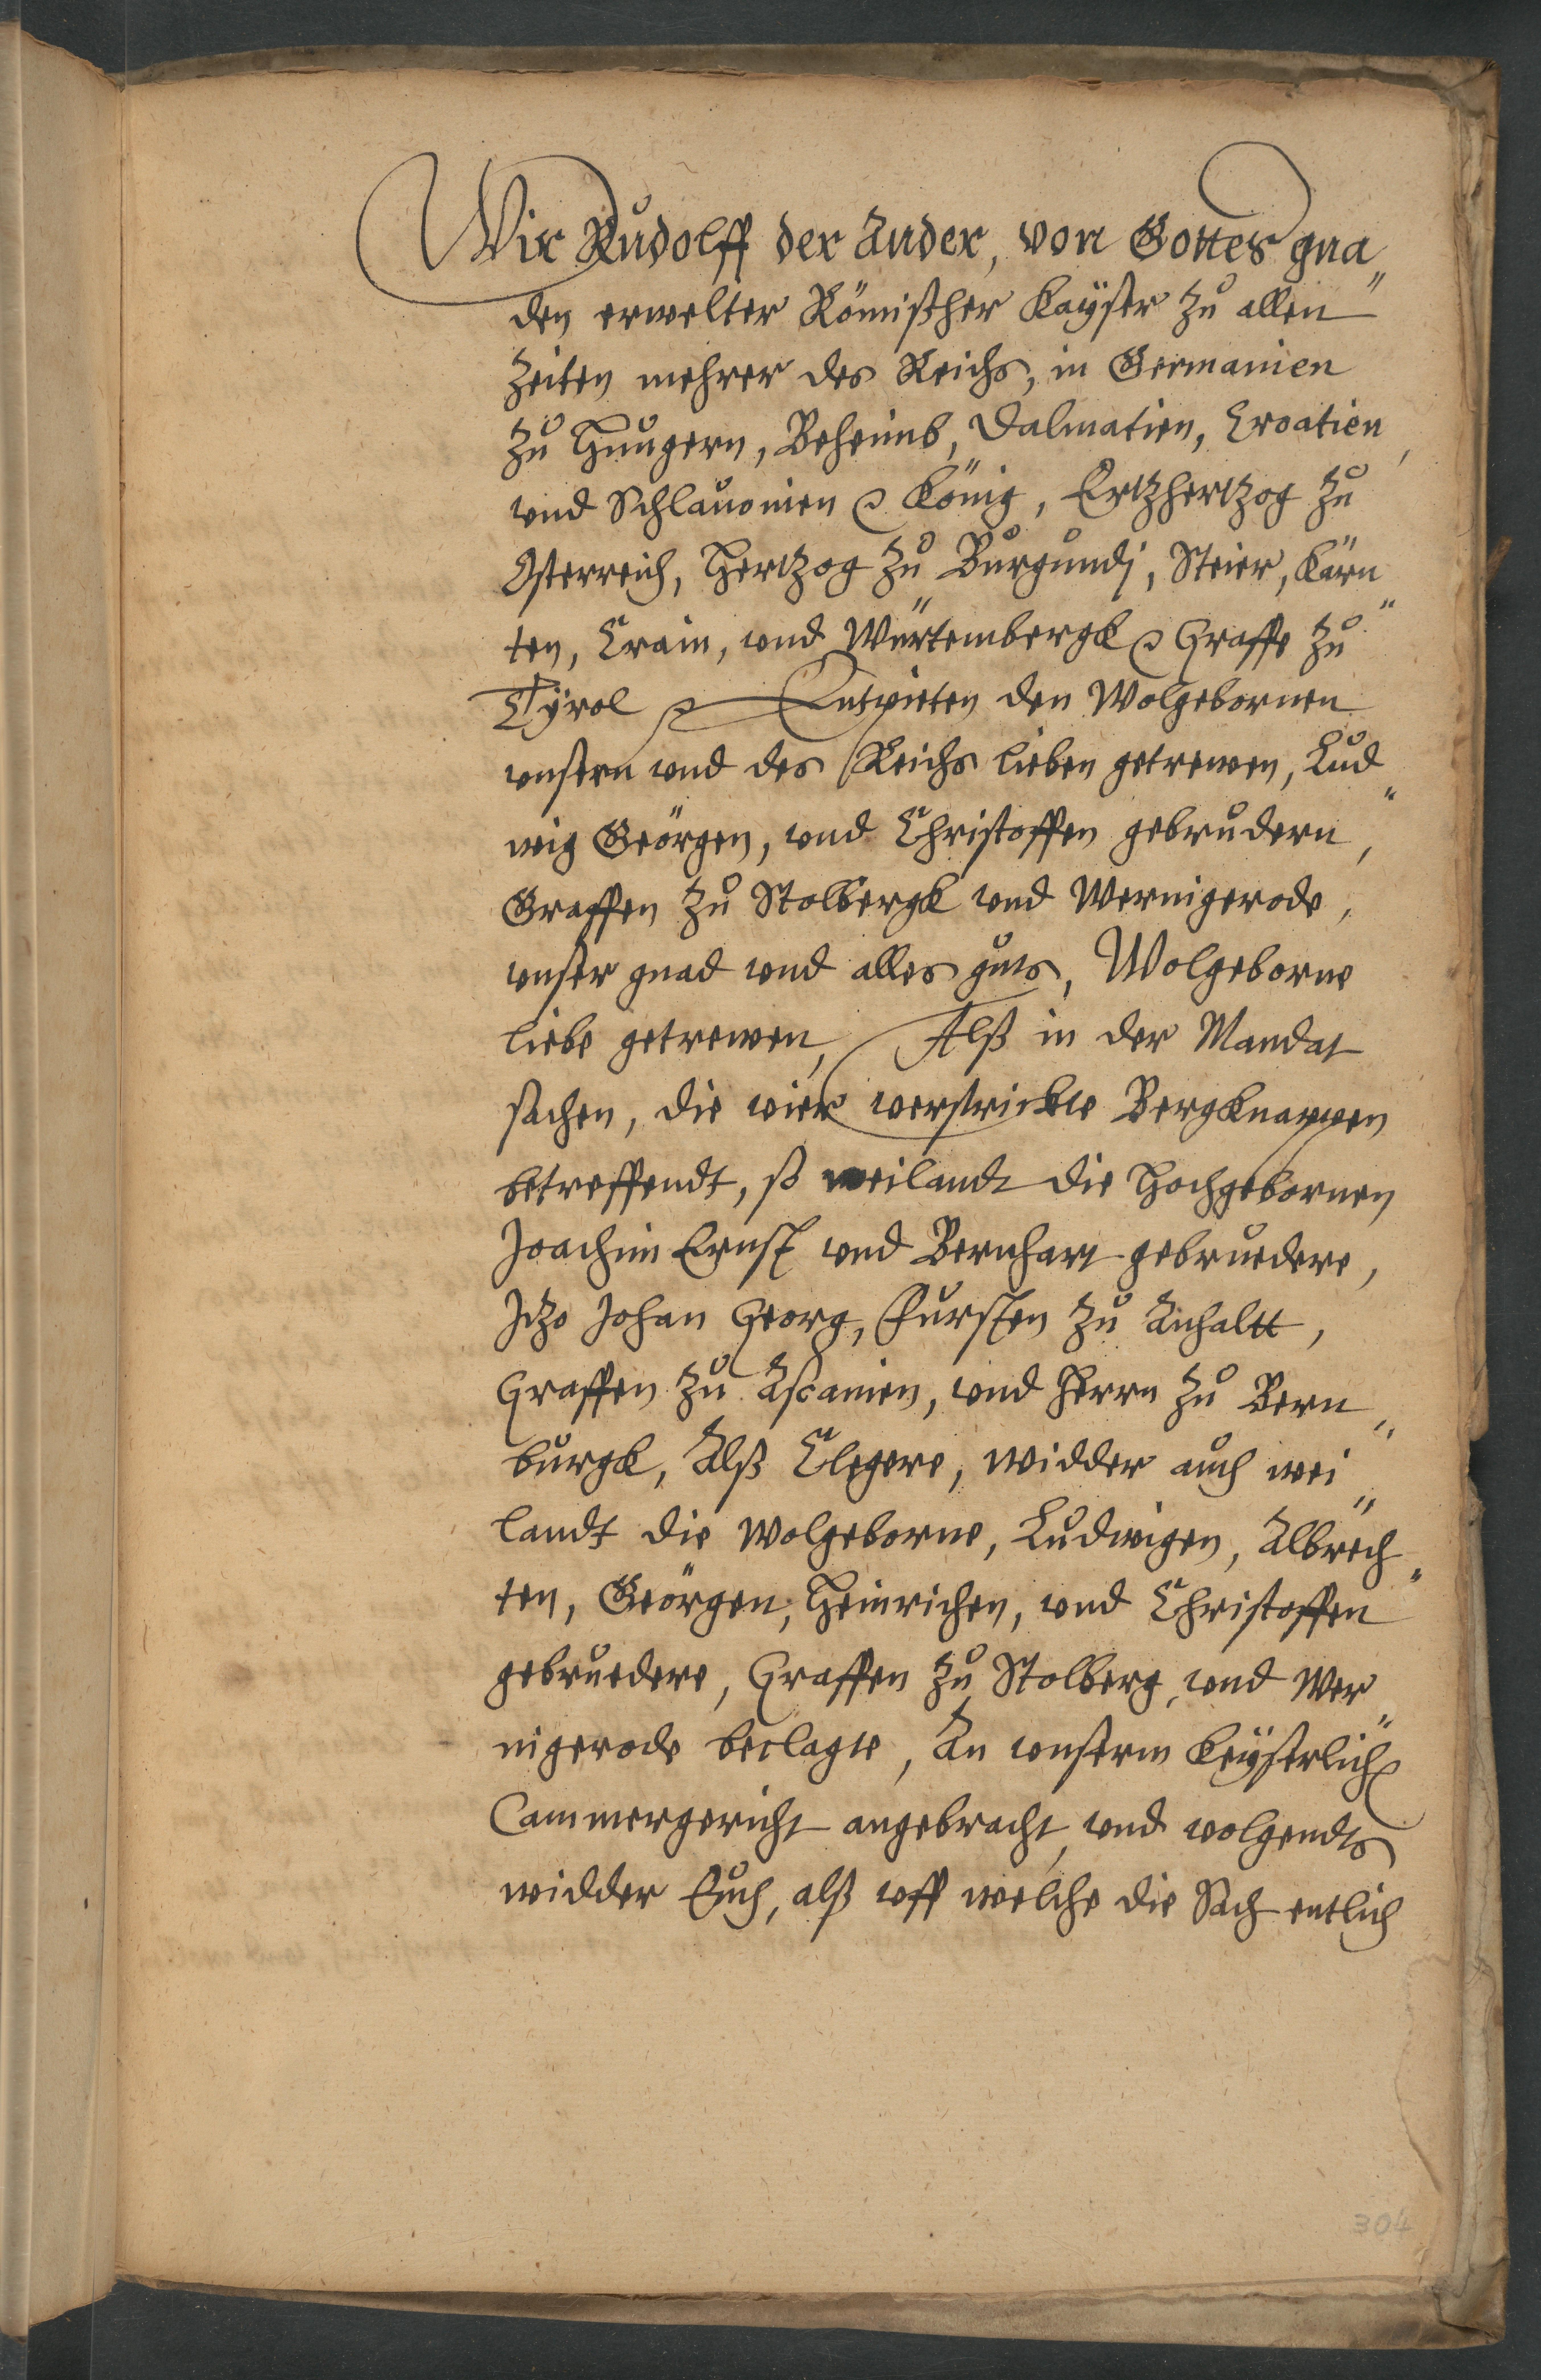 Wir Rudolff der Ander, von Gottes gna„
den erwelter Römischer Kayser zu allen
Zeiten mehrer des Reichs, in Germanien
zu Hungern, Beheimb, Dalmatien, Croatien,
vnd Schlauonien ꝛc König, Ertzhertzog zu
Osterreich, Hertzog zu Burgundj, Steier, Kärn„
ten, Crain, vnd Würtembergk ꝛc Graffe zu
Tÿrol ꝛc Entpieten den Wolgebornen
vnsern vnd des Reichs lieben getrewen, Lud„
wig Geörgen, vnd Christoffen gebrudern,
Graffen zu Stolbergk vnd Wernigerode,
vnser gnad vnd alles guts, Wolgeborne
liebe getrewen, Alß in der Mandat
sachen, die vier verstrickte Bergknappen
betreffendt, so weilandt die Hochgebornen
Joachim Ernst vnd Bernhart gebruedere,
Jtzo Johan Georg, Fursten zu Anhaltt,
Graffen zu Ascanien, vnd Herrn zu Bern„
burgk, Alß Clegere, widder auch wei„
landt die Wolgeborne, Ludwigen, Albrech„
ten, Geörgen, Heinrichen, vnd Christoffen
gebruedere, Graffen zu Stolberg, vnd Wer„
nigerode beclagte, An vnserm Keÿserlichen
Cammergericht angebracht, vnd volgendts
widder Euch, alß vff welche die Sach entlich
304